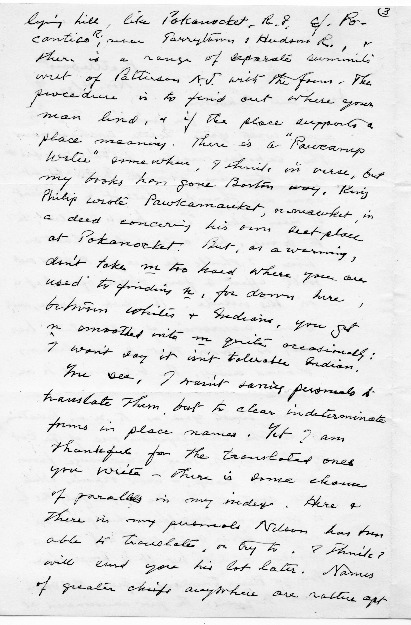 ③
lying hill, like Pokanocket, R.I. cf. Po-
cantico R., near Tarrytown & Hudson R., &
there is a range of separate summits
west of Patterson N.J. with the form. The
procedure is to find out where your
man lived, & if the place supports a
place meaning. There is a "Pawcamp
Writer" somewhere, I think in verse, but
my books have gone Boston way. King
Philip wrote Pawkamauket, nunawket, in
a deed concerning his own seat place
at Pokanocket. But, as a warning,
don't take m too hard where you are
used to finding n, for down here,
between whites & Indians, you get
n smoothed into m quite occasionally:
I won't say it isn't tolerable Indian.
You see, I wasn't saving personals to
translate them, but to clear indeterminate
forms in place names. Yet I am
thankful for the translated ones
you write – there is some chance
of parallels in my index. Here &
there in my personals Nelson has been
able to translate, or try to. I think I
will send you his lot later. Names
of greater chiefs anywhere are rather apt